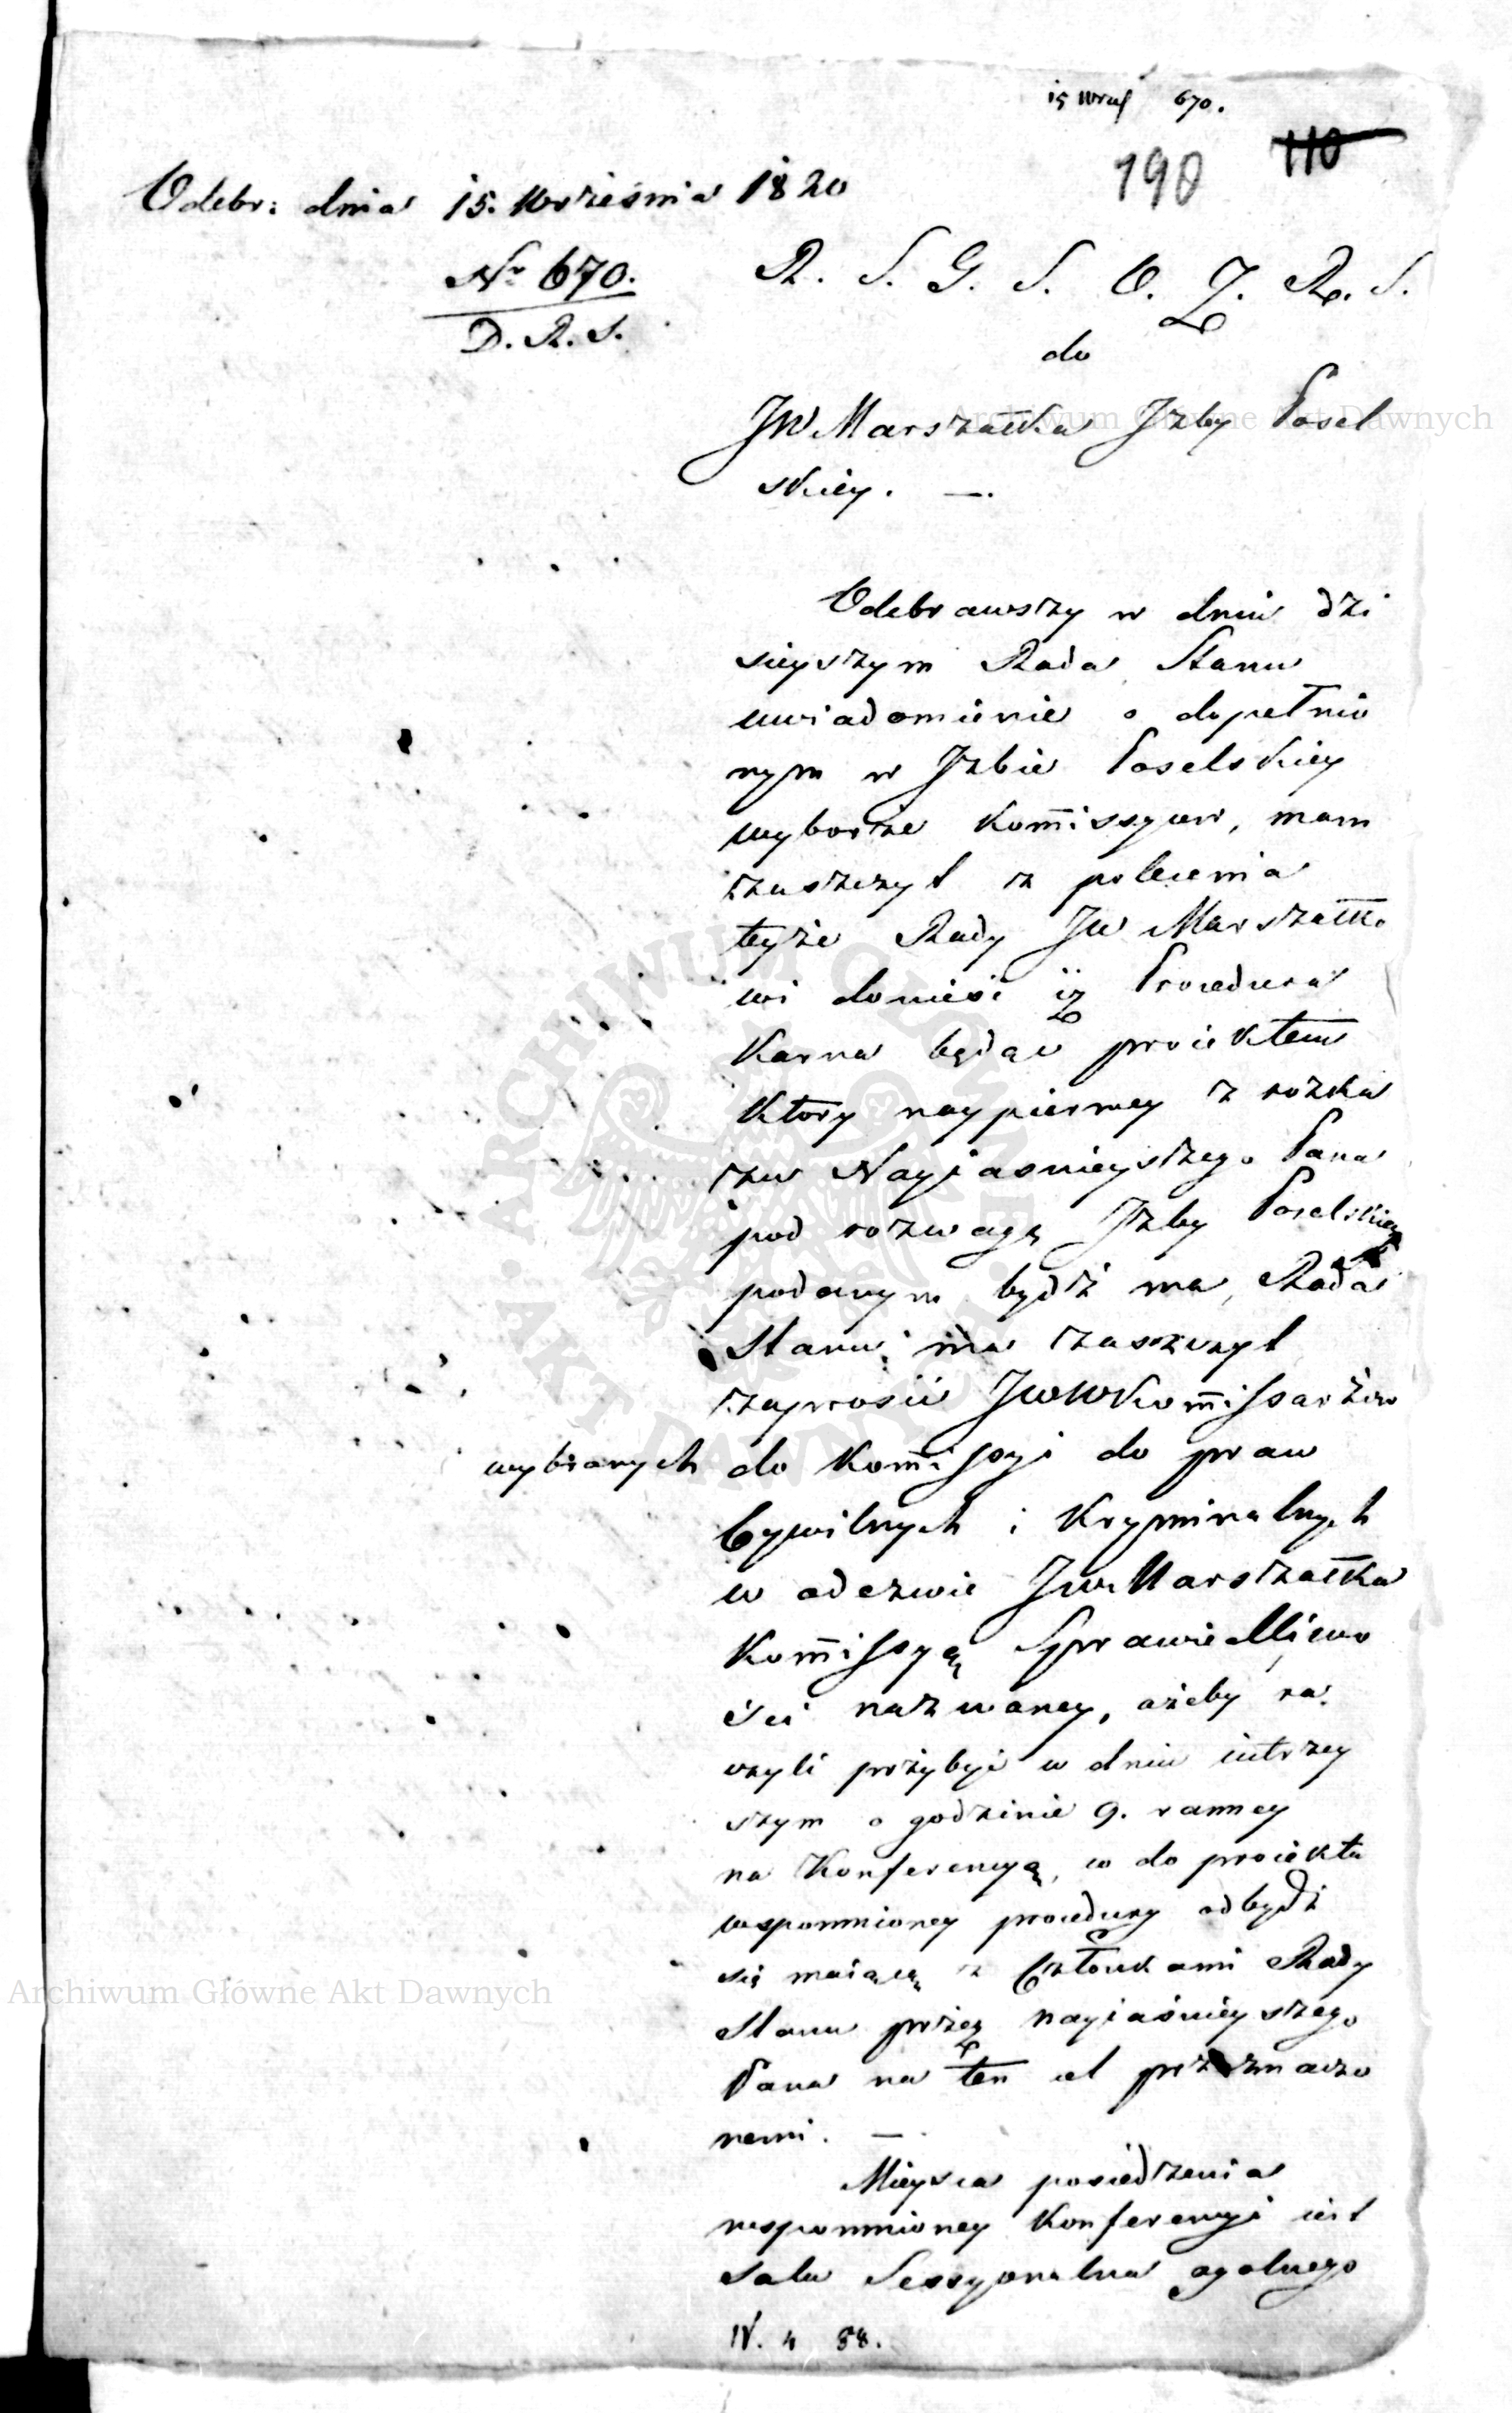 15 Wrześ 670.
190 110
Odebr: dnia 15. Września 1820
Nr 670.
D. R. S.
R. S. G. S. O. Z. R. S.
do
JW Marszałka Jzby Posel
skiey. —.
Odebrawszy w dniu dzi
sieyszym Rada Stanu
uwiadomienie o dopełnio
nym w Jzbie Poselskiey
wyborze Kommissyow, mam
zaszczyt z polecenia
teyże Rady JW Marszałko
wi donieść iż Procedura
Karna będąc proiektem
ktory naypierwey z rozka
zu Nayiasnieyszego Pana
pod rozwagę Jzby Poselskiey
podanym bydź ma, Rada
Stanu ma zaszczyt
zaprosić JWW Kommissarzow
wybranych do Kommissyi do praw
Cywilnych i Kryminalnych
w odezwie JW. Marszałka
Kommissyą Sprawiedliwo
ści nazwaney, ażeby ra
czyli przybyć w dniu iutrzey
szym o godzinie 9. ranney
na Konferencyą, co do proiektu
wspomnioney procedury odbydź
się maiącą z Członkami Rady
Stanu przez nayiaśnieyszego
Pana na ten cel przeznaczo
nemi. —
Mieysca posiedzenia
wspomnioney Konferencyi iest
Sala Sessyonalna ogolnego
IV. 4 88.
Archiwum Główne Akt Dawnych
Archiwum Główne Akt Dawnych
ARCHIWUM GŁÓWNE AKT DAWNYCH